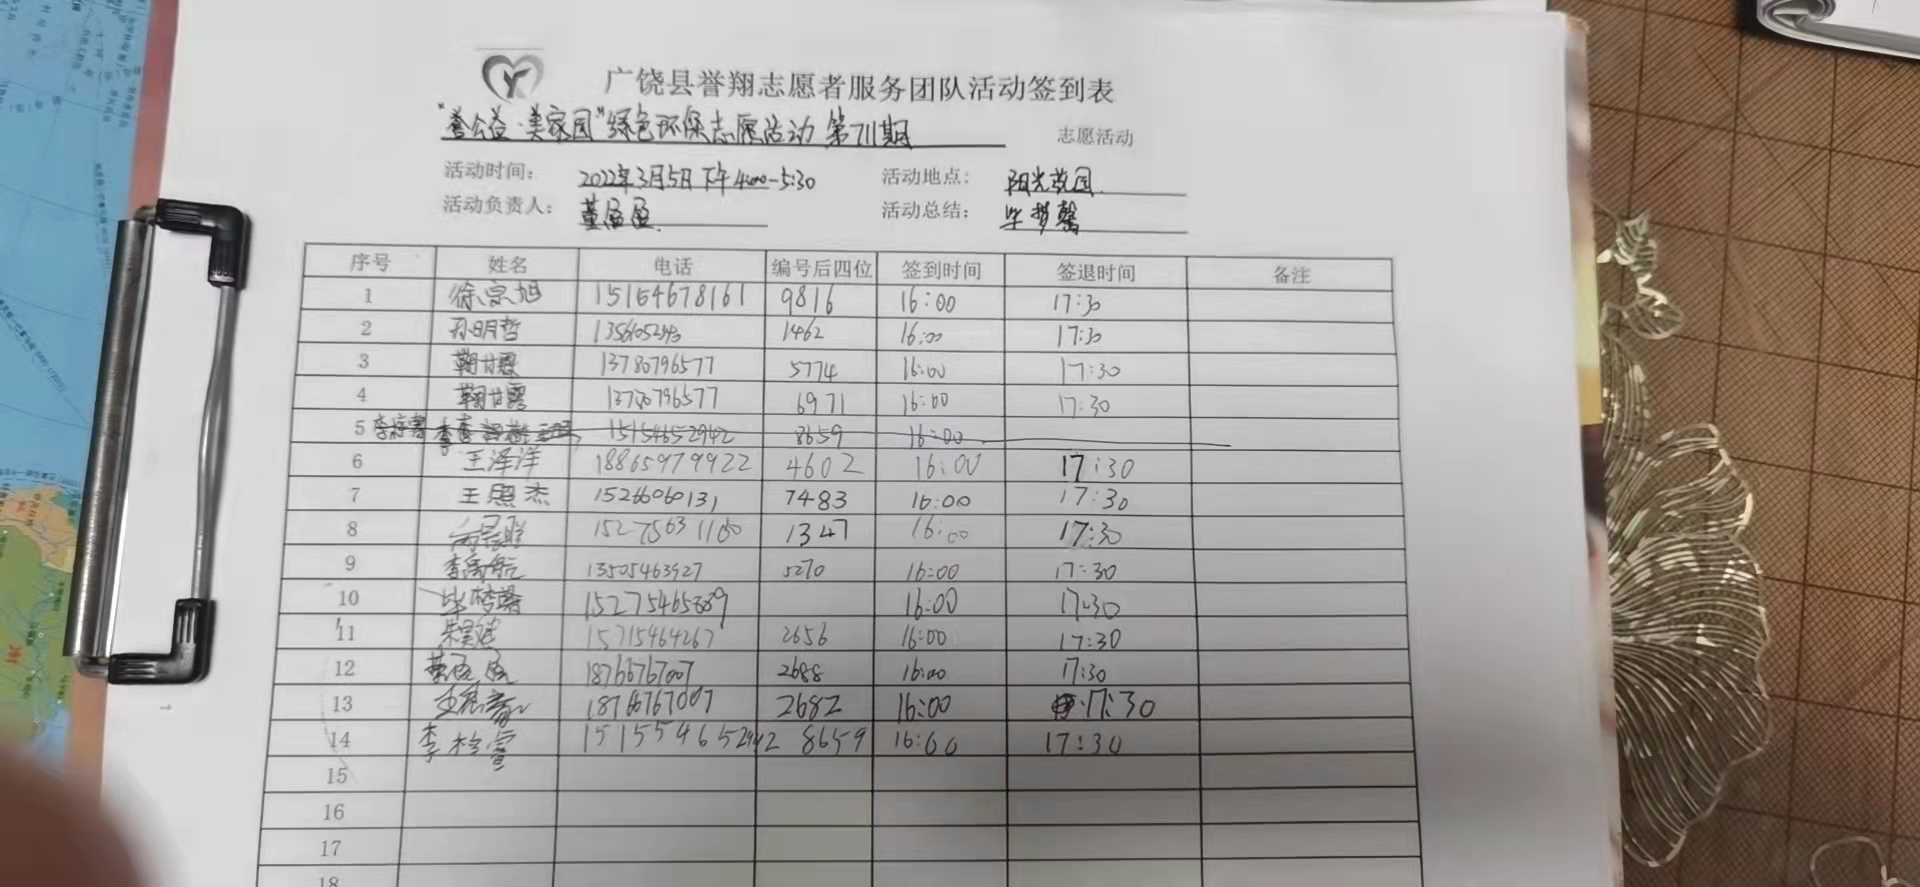 广饶县誉翔志愿者服务团队活动签到表
"誉公益·美家园"绿色环保志愿活动 第711期 志愿活动
活动时间: 2022年3月5日下午4:00-5:30 活动地点: 阳光花园
活动负责人: 董盈盈 活动总结: 毕梦馨
序号 姓名 电话 编号后四位 签到时间 签退时间 备注
1 徐宗旭 15154678161 9816 16:00 17:30
2 孙明哲 1462 16:00 17:30
3 鞠甘霖 13780796577 5774 16:00 17:30
4 鞠甘露 13780796577 6971 16:00 17:30
5 15154652942 8659 16:00
6 王泽洋 18865979922 4602 16:00 17:30
7 王照杰 15266060131 7483 16:00 17:30
8 15275631160 1347 16:00 17:30
9 李禹航 13505463927 5270 16:00 17:30
10 毕梦馨 16:00 17:30
11 15715464267 2656 16:00 17:30
12 董盈盈 18766767007 2688 16:00 17:30
13 18766767007 2682 16:00 17:30
14 李梓睿 151554652942 8659 16:00 17:30
15
16
17
18